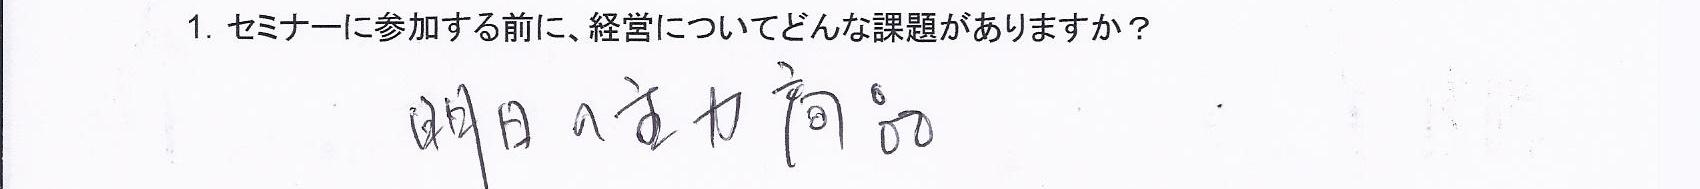 1. セミナーに参加する前に、経営についてどんな課題がありますか？
明日の主力商品